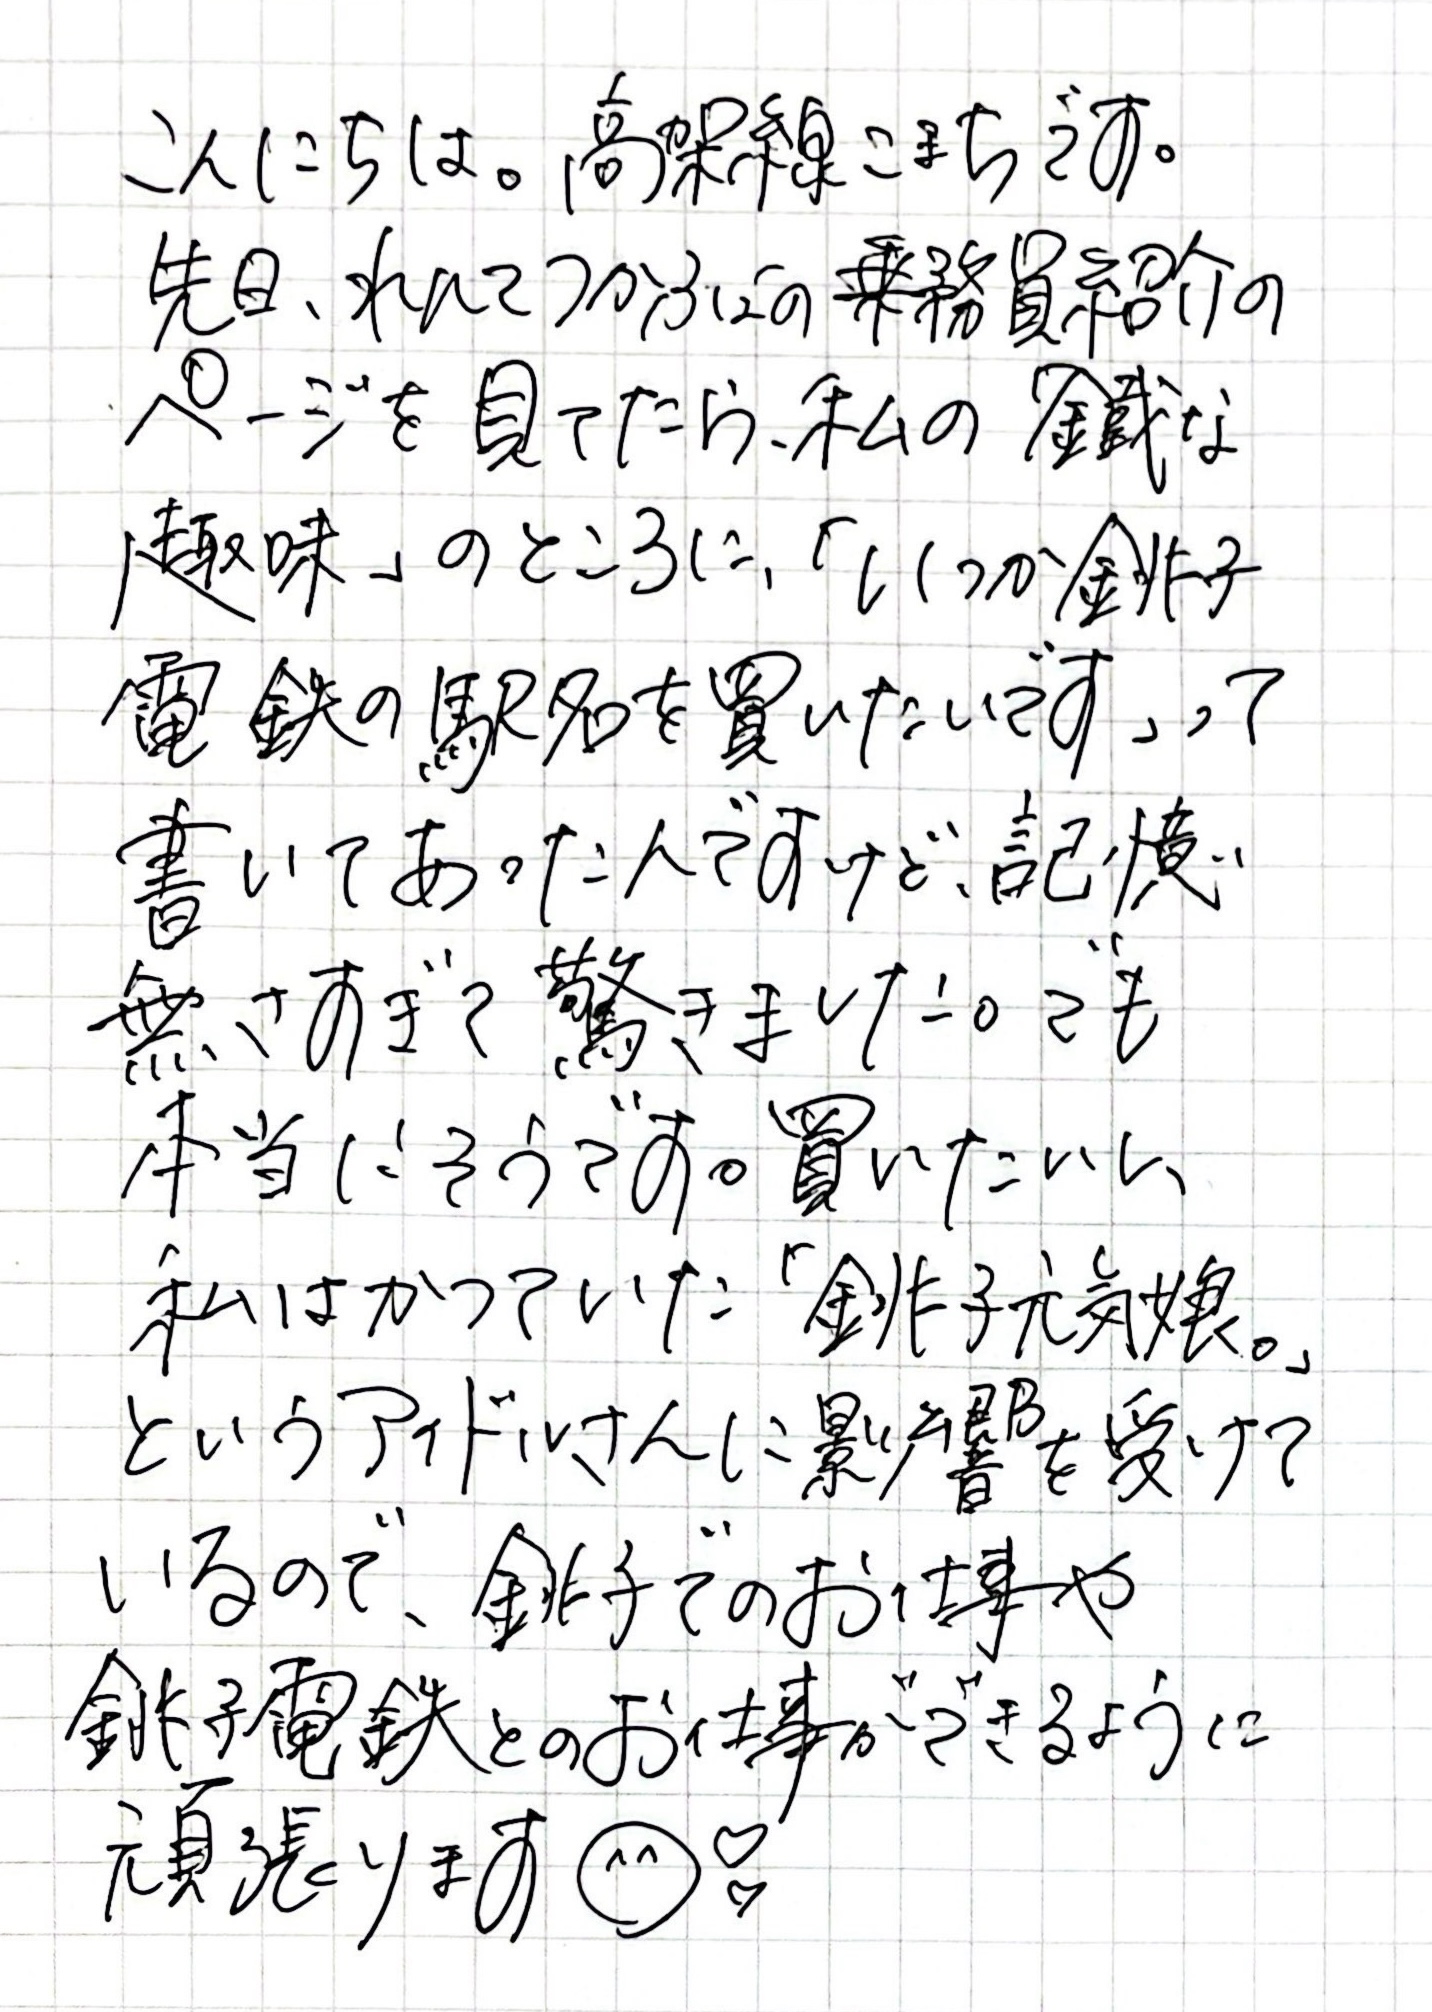 こんにちは。高架線こまちです。
先日、れんてつかふぇの乗務員紹介の
ページを見てたら、私の「鐵な
趣味」のところに、「いつか銚子
電鉄の駅名を買いたいです」って
書いてあったんですけど、記憶
無さすぎて驚きました。でも
本当にそうです。買いたいし、
私はかつていた「銚子元気娘。」
というアイドルさんに影響を受けて
いるので、銚子でのお仕事や
銚子電鉄とのお仕事ができるように
頑張ります